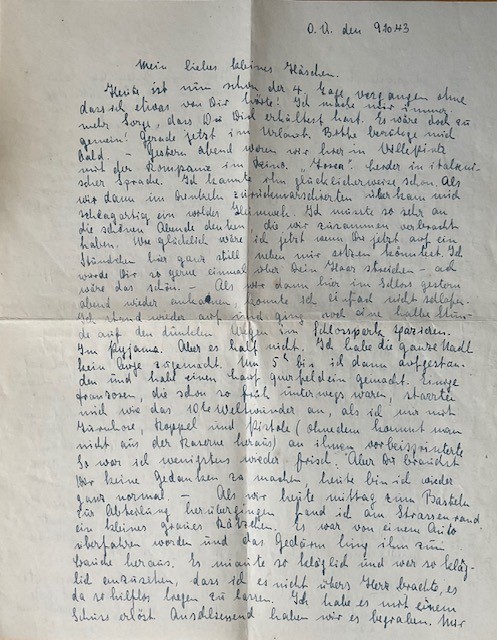 O.U. den 9.10.43
Mein liebes kleines Häschen.
Heute ist nun schon der 4. Tage vergangen ohne
dass ich etwas von Dir hörte! Ich mache mir immer
mehr Sorge, dass Du Dich erkältest hast. Es wäre doch zu
gemein! Gerade jetzt im Urlaub. Bitte beruhige mich
bald. – Gestern abend waren wir hier in
mit der Kompanie im Kino. „Tosca" leider in italieni-
scher Sprache. Ich kannte ihn glücklicherweise schon. Als
wir dann im Dunkeln zurückmarschierten überkam mich
schlagartig ein wildes Heimweh. Ich musste so sehr an
die schönen Abende denken, die wir zusammen verbracht
haben. Wie glücklich wäre ich jetzt wenn Du jetzt auf ein
Stündchen hier ganz still neben mir sitzen könntest. Ich
würde Dir so gerne einmal über Dein Haar streichen – ach
wäre das schön. – Als wir dann hier im Schloss gestern
abend wieder ankamen, konnte ich einfach nicht schlafen.
Ich stand wieder auf und ging noch eine halbe Stun-
de auf den dunklen Wegen im Schlosspark spazieren.
Im Pyjama. Aber es half nicht. Ich habe die ganze Nacht
kein Auge zugemacht. Um 5h bin ich dann aufgestan-
den und habe einen Lauf querfeldein gemacht. Einige
Franzosen, die schon so früh unterwegs waren, starrten
mich wie das 10te Weltwunder an, als ich nur mit
Turnhose, Koppel und Pistole (ohnedem kommt man
nicht aus der Kaserne heraus) an ihnen vorbeisprintete
So war ich wenigstens wieder frisch. Aber Du brauchst
Dir keine Gedanken zu machen, heute bin ich wieder
ganz normal. – Als wir heute mittag zum Basteln
zur Abteilung herübergingen fand ich am Strassenrand
ein kleines graues Kätzchen. Es war von einem Auto
überfahren worden und das Gedärm hing ihm zum
Bauche heraus. Es miaute so kläglich und war so kläg-
lich anzusehen, dass ich es nicht übers Herz brachte, es
da so hilflos liegen zu lassen. Ich habe es mit einem
Schuss erlöst. Anschliessend haben wir es begraben. Mir